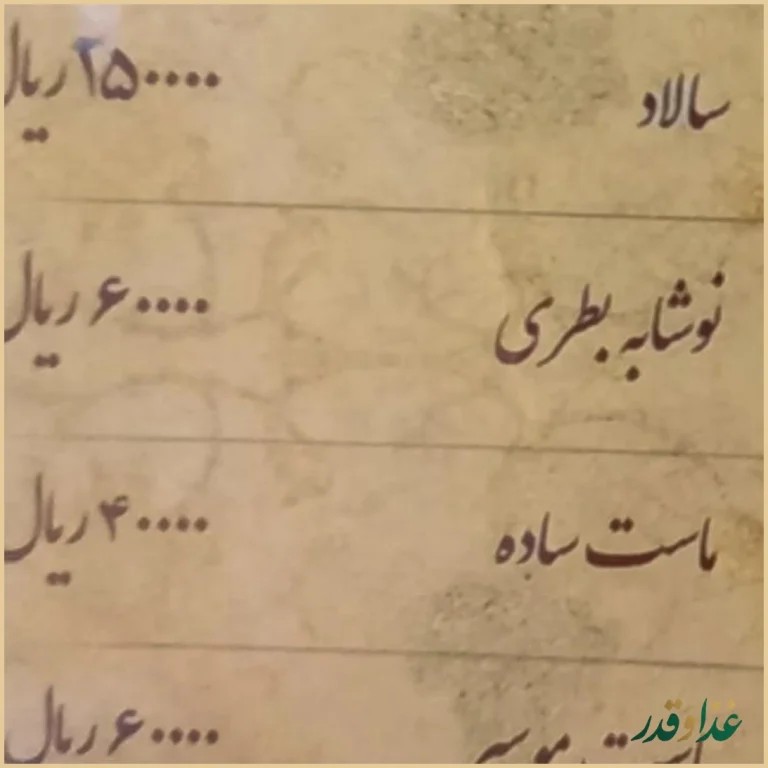 سالاد ۲۵۰۰۰۰ ریال
نوشابه بطری ۶۰۰۰۰ ریال
ماست ساده ۴۰۰۰۰ ریال
۶۰۰۰۰ ریال
غذا و قدر